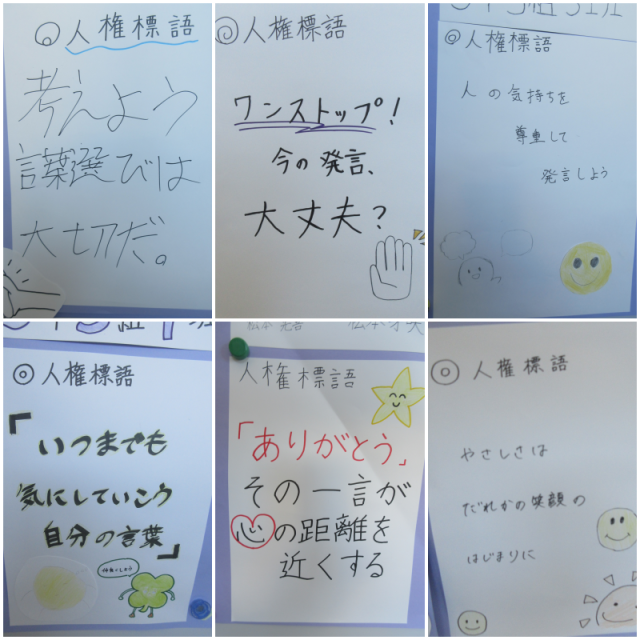 ◎人権標語
考えよう
言葉選びは
大切だ。
◎人権標語
ワンストップ!
今の発言、
大丈夫?
◎人権標語
人の気持ちを
尊重して
発言しよう
◎人権標語
「いつまでも
気にしていこう
自分の言葉」
人権標語
「ありがとう」
その一言が
心の距離を
近くする
◎人権標語
やさしさは
だれかの笑顔の
はじまりに